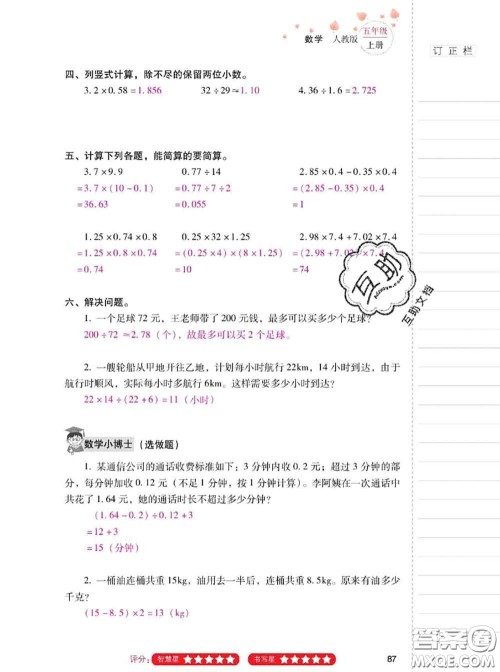 数学 人教版 五年级 上册
订正栏
四、列竖式计算，除不尽的保留两位小数。
3.2×0.58=1.856 32÷29≈1.10 4.36÷1.6=2.725
五、计算下列各题，能简算的要简算。
3.7×9.9 0.77÷14 2.85×0.4-0.35×0.4
=3.7×(10-0.1) =0.77÷7÷2 =(2.85-0.35)×0.4
=36.63 =0.055 =1
1.25×0.74×0.8 0.25×32×1.25 2.98×7.4+7.02×7.4
=1.25×0.8×0.74 =(0.25×4)×(8×1.25) =(2.98+7.02)×7.4
=0.74 =10 =74
六、解决问题。
1. 一个足球72元，王老师带了200元钱，最多可以买多少个足球？
200÷72≈2.78（个），故最多可以买2个足球。
2. 一艘轮船从甲地开往乙地，计划每小时航行22km，14小时到达，由于
航行时顺风，实际每小时多航行6km。这样需要多少小时到达？
22×14÷(22+6)=11（小时）
数学小博士（选做题）
1. 某通信公司的通话收费标准如下：3分钟内收0.2元；超过3分钟的部
分，每分钟加收0.12元（不足1分钟，按1分钟计算）。李阿姨在一次通话中
共花了1.64元，她的通话时长不超过多少分钟？
(1.64-0.2)÷0.12+3
=12+3
=15（分钟）
2. 一桶油连桶共重15kg，油用去一半后，连桶共重8.5kg。原来有油多少
千克？
(15-8.5)×2=13（kg）
互助
互助文档
评分：智慧星 ★★★★★ 书写星 ★★★★★ 87